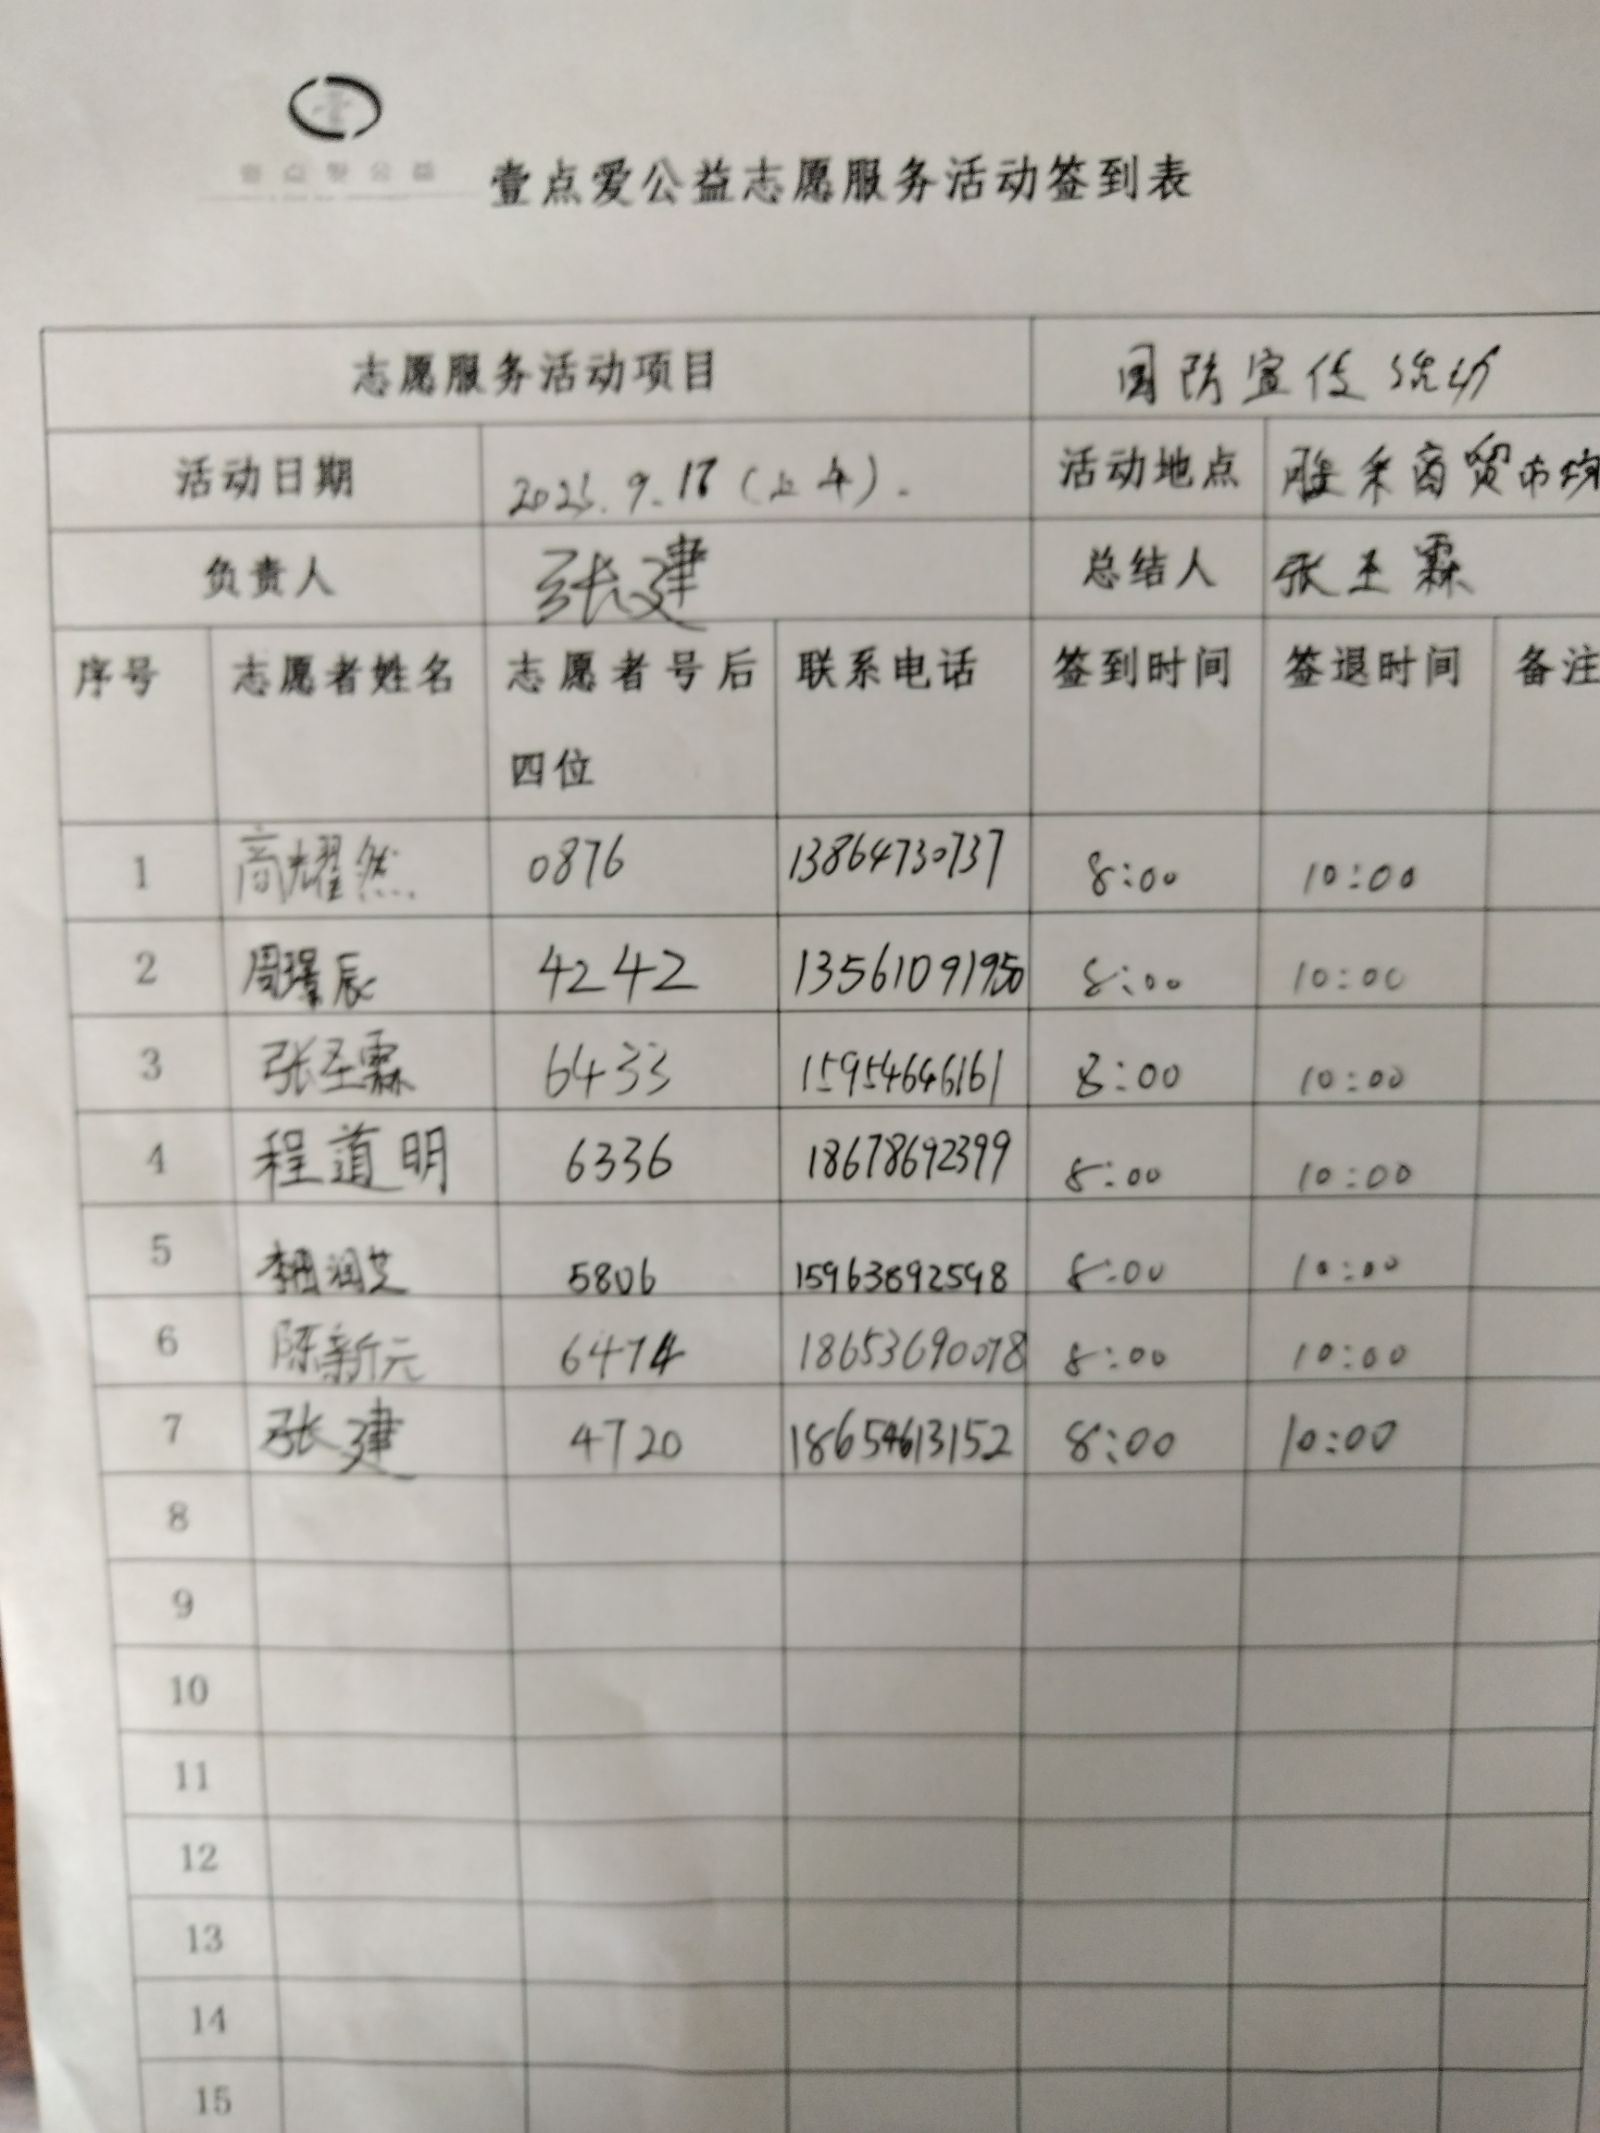 壹点爱公益
壹点爱公益志愿服务活动签到表
志愿服务活动项目 国防宣传活动
活动日期 (上午). 活动地点 胜采商贸市场
负责人 张建 总结人 张圣霖
序号 志愿者姓名 志愿者号后四位 联系电话 签到时间 签退时间 备注
1 商耀然 0876 13864730737 8:00 10:00
2 周璟辰 4242 13561091950 8:00 10:00
3 张圣霖 6433 15954646161 8:00 10:00
4 程道明 6336 18678692399 8:00 10:00
5 润芝 5806 15963892598 8:00 10:00
6 陈新元 6474 18653690078 8:00 10:00
7 张建 4720 18654613152 8:00 10:00
8
9
10
11
12
13
14
15